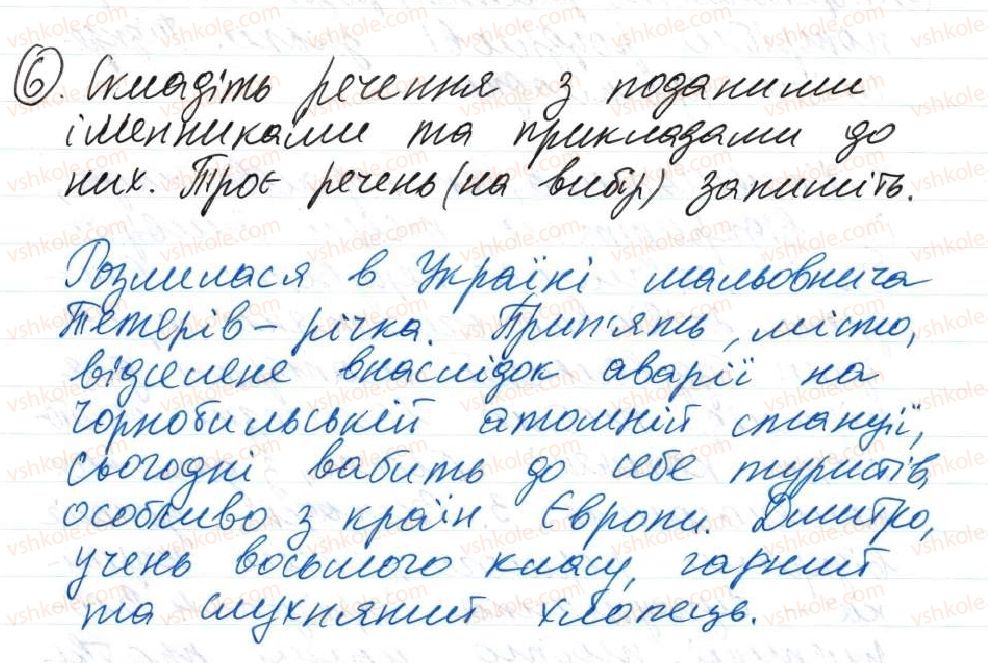 6. Складіть речення з поданими
іменниками та прикладами до
них. Троє речень (на вибір) запишіть.
Розлилася в Україні мальовнича
Тетерів – річка. Прип'ять, місто,
відселене внаслідок аварії на
Чорнобильській атомній станції,
сьогодні вабить до себе туристів,
особливо з країн Європи. Дмитро,
учень восьмого класу, гарний
та слухняний хлопець.